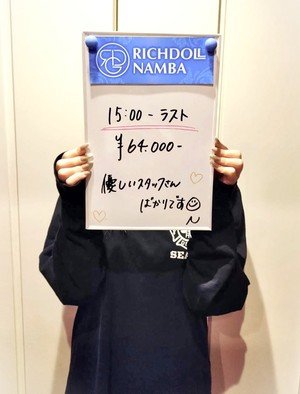 RICHDOLL
NAMBA
15:00-ラスト
¥64.000-
優しいスタッフさん
ばかりです☺
SEA